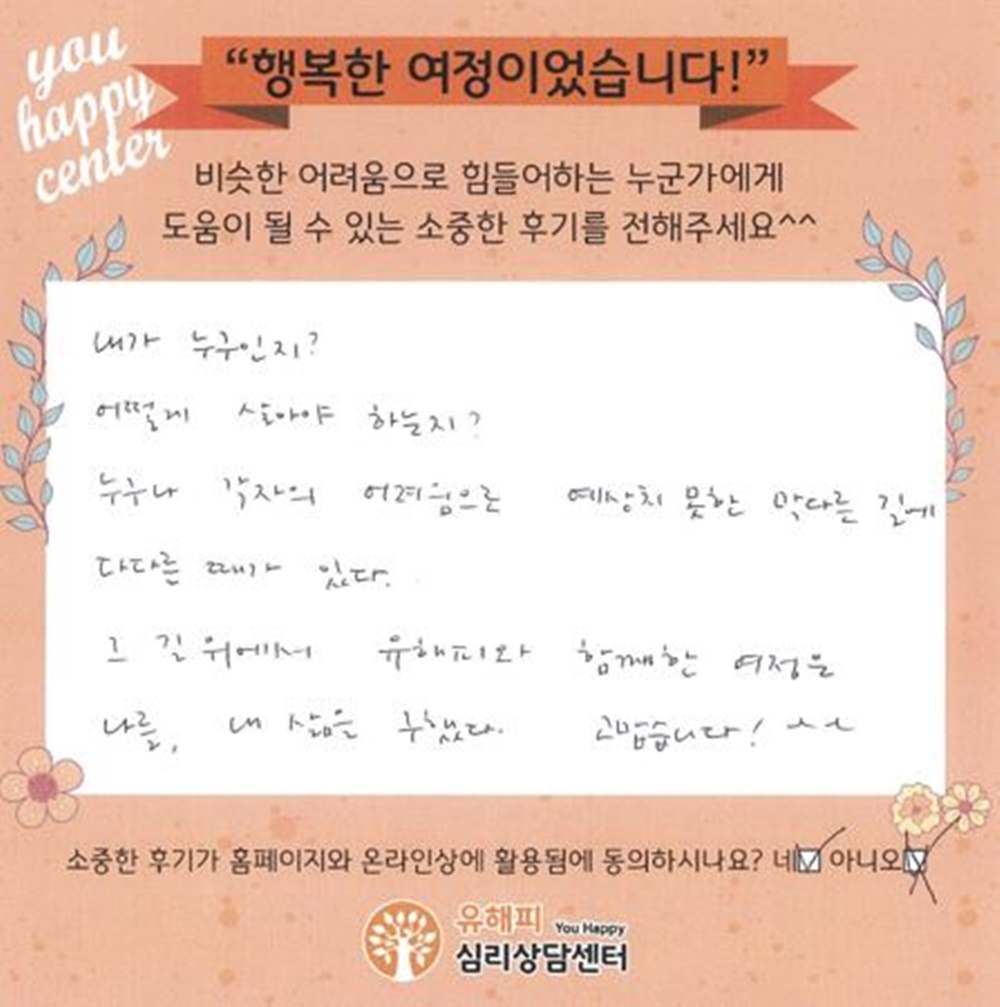 you
happy
center
“행복한 여정이었습니다!”
비슷한 어려움으로 힘들어하는 누군가에게
도움이 될 수 있는 소중한 후기를 전해주세요^^
내가 누구인지?
어떻게 살아야 하는지?
누구나 각자의 어려움으로 예상치 못한 막다른 길에
다다를 때가 있다.
그 길 위에서 유해피와 함께한 여정은
나를, 내 삶을 구했다. 고맙습니다! ^^
소중한 후기가 홈페이지와 온라인상에 활용됨에 동의하시나요? 네☑ 아니오☑
유해피 You Happy
심리상담센터